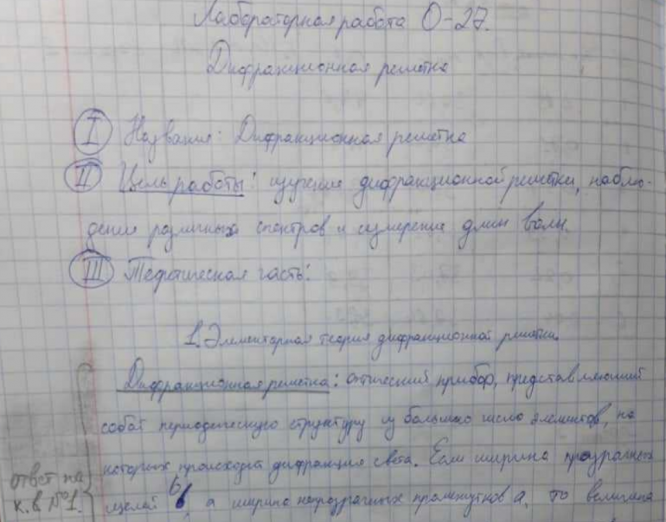 Лабораторная работа О-27.
Дифракционная решетка
I Название: Дифракционная решетка
II Цель работы: изучение дифракционной решетки, наблю-
дение различных спектров и измерение длин волн.
III Теоретическая часть:
1. Элементарная теория дифракционной решетки.
Дифракционная решетка: оптический прибор, представляющий
собой периодическую структуру из большого числа элементов, на
которых происходит дифракция света. Если ширина прозрачных
ответ на щелей b, а ширина непрозрачных промежутков a, то величина
к.в №1.